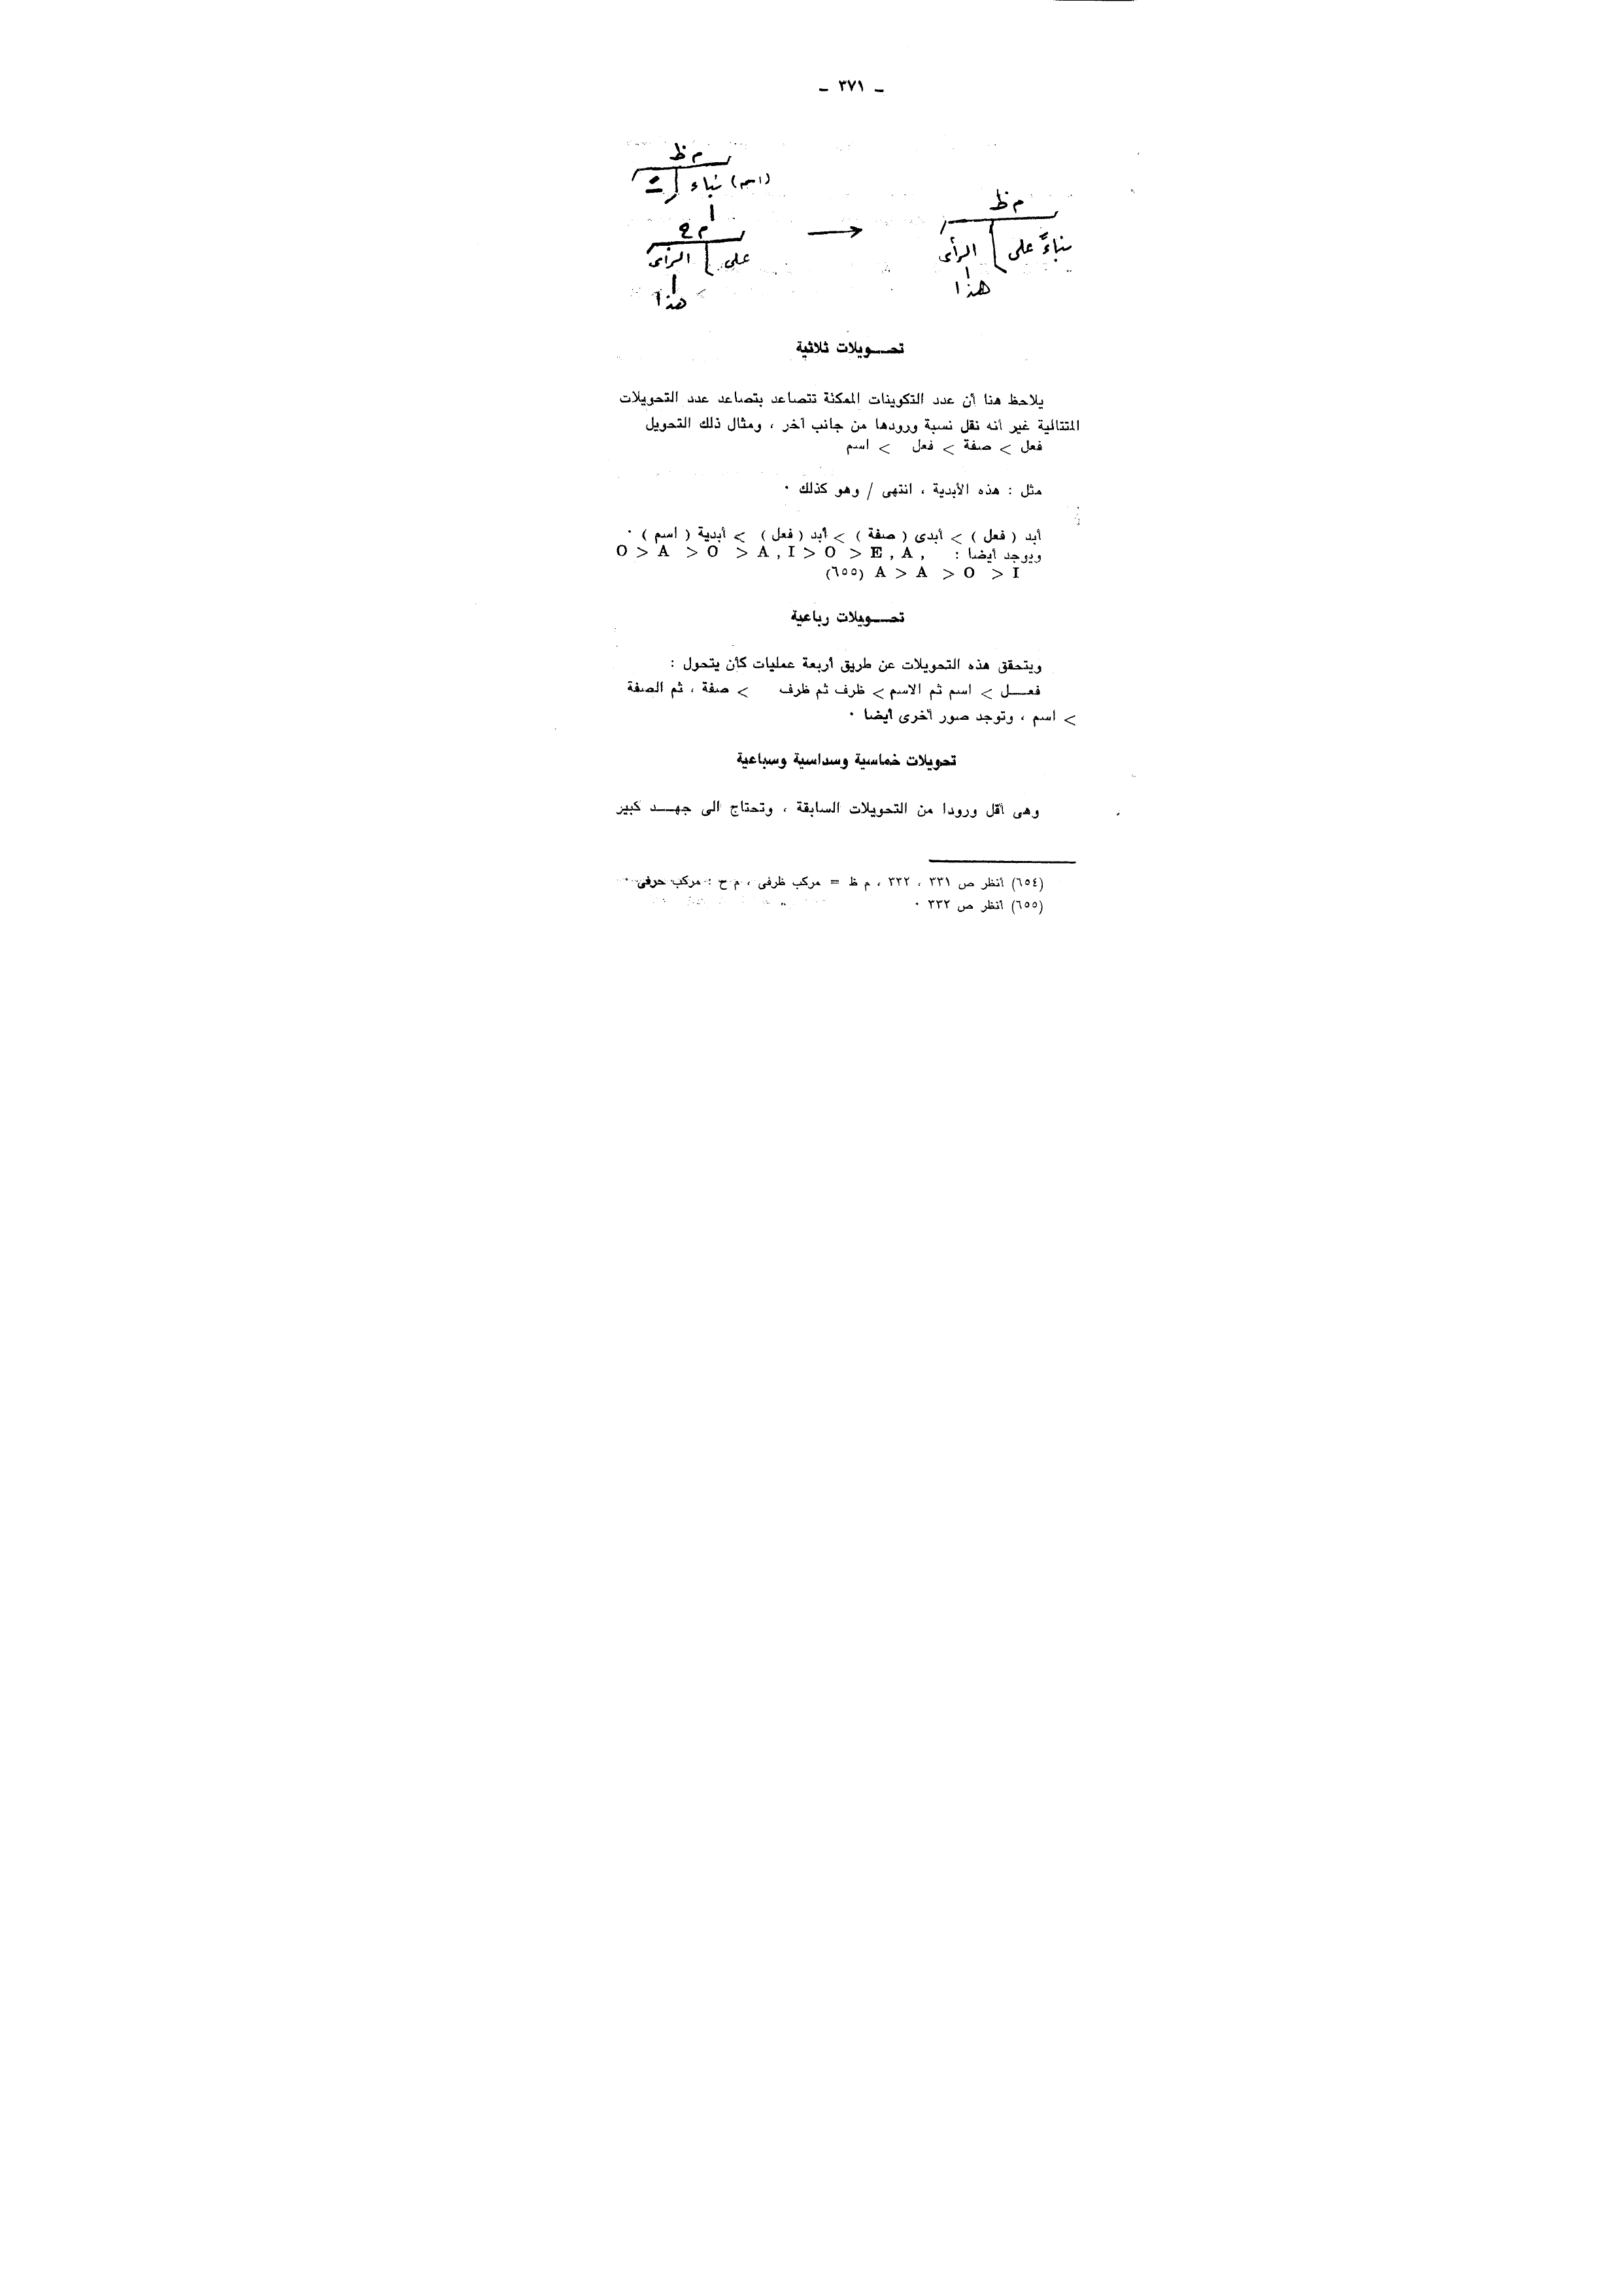 ـ ٣٧١ ـ
م ظ
(اسم) بناء
م ح
على الرأى
هذا
م ظ
بناءً على الرأى
هذا
تحـــويلات ثلاثية
يلاحظ هنا أن عدد التكوينات الممكنة تتصاعد بتصاعد عدد التحويلات
المتتالية غير أنه نقل نسبة ورودها من جانب آخر ، ومثال ذلك التحويل
فعل > صفة > فعل > اسم
مثل : هذه الأبدية ، انتهى / وهو كذلك ٠
أبد ( فعل ) > أبدى ( صفة ) > أبد ( فعل ) > أبدية ( اسم ) ٠
ويوجد أيضا : O > A > O > A , I > O > E , A ,
A > A > O > I (٦٥٥)
تحـــويلات رباعية
ويتحقق هذه التحويلات عن طريق أربعة عمليات كأن يتحول :
فعــــل > اسم ثم الاسم > ظرف ثم ظرف > صفة ، ثم الصفة
> اسم ، وتوجد صور أخرى أيضا ٠
تحويلات خماسية وسداسية وسباعية
وهى أقل ورودا من التحويلات السابقة ، وتحتاج الى جهـــد كبير
(٦٥٤) أنظر ص ٣٣١ ، ٣٣٢ ، م ظ = مركب ظرفى ، م ح : مركب حرفى ٠
(٦٥٥) أنظر ص ٣٣٢ ٠